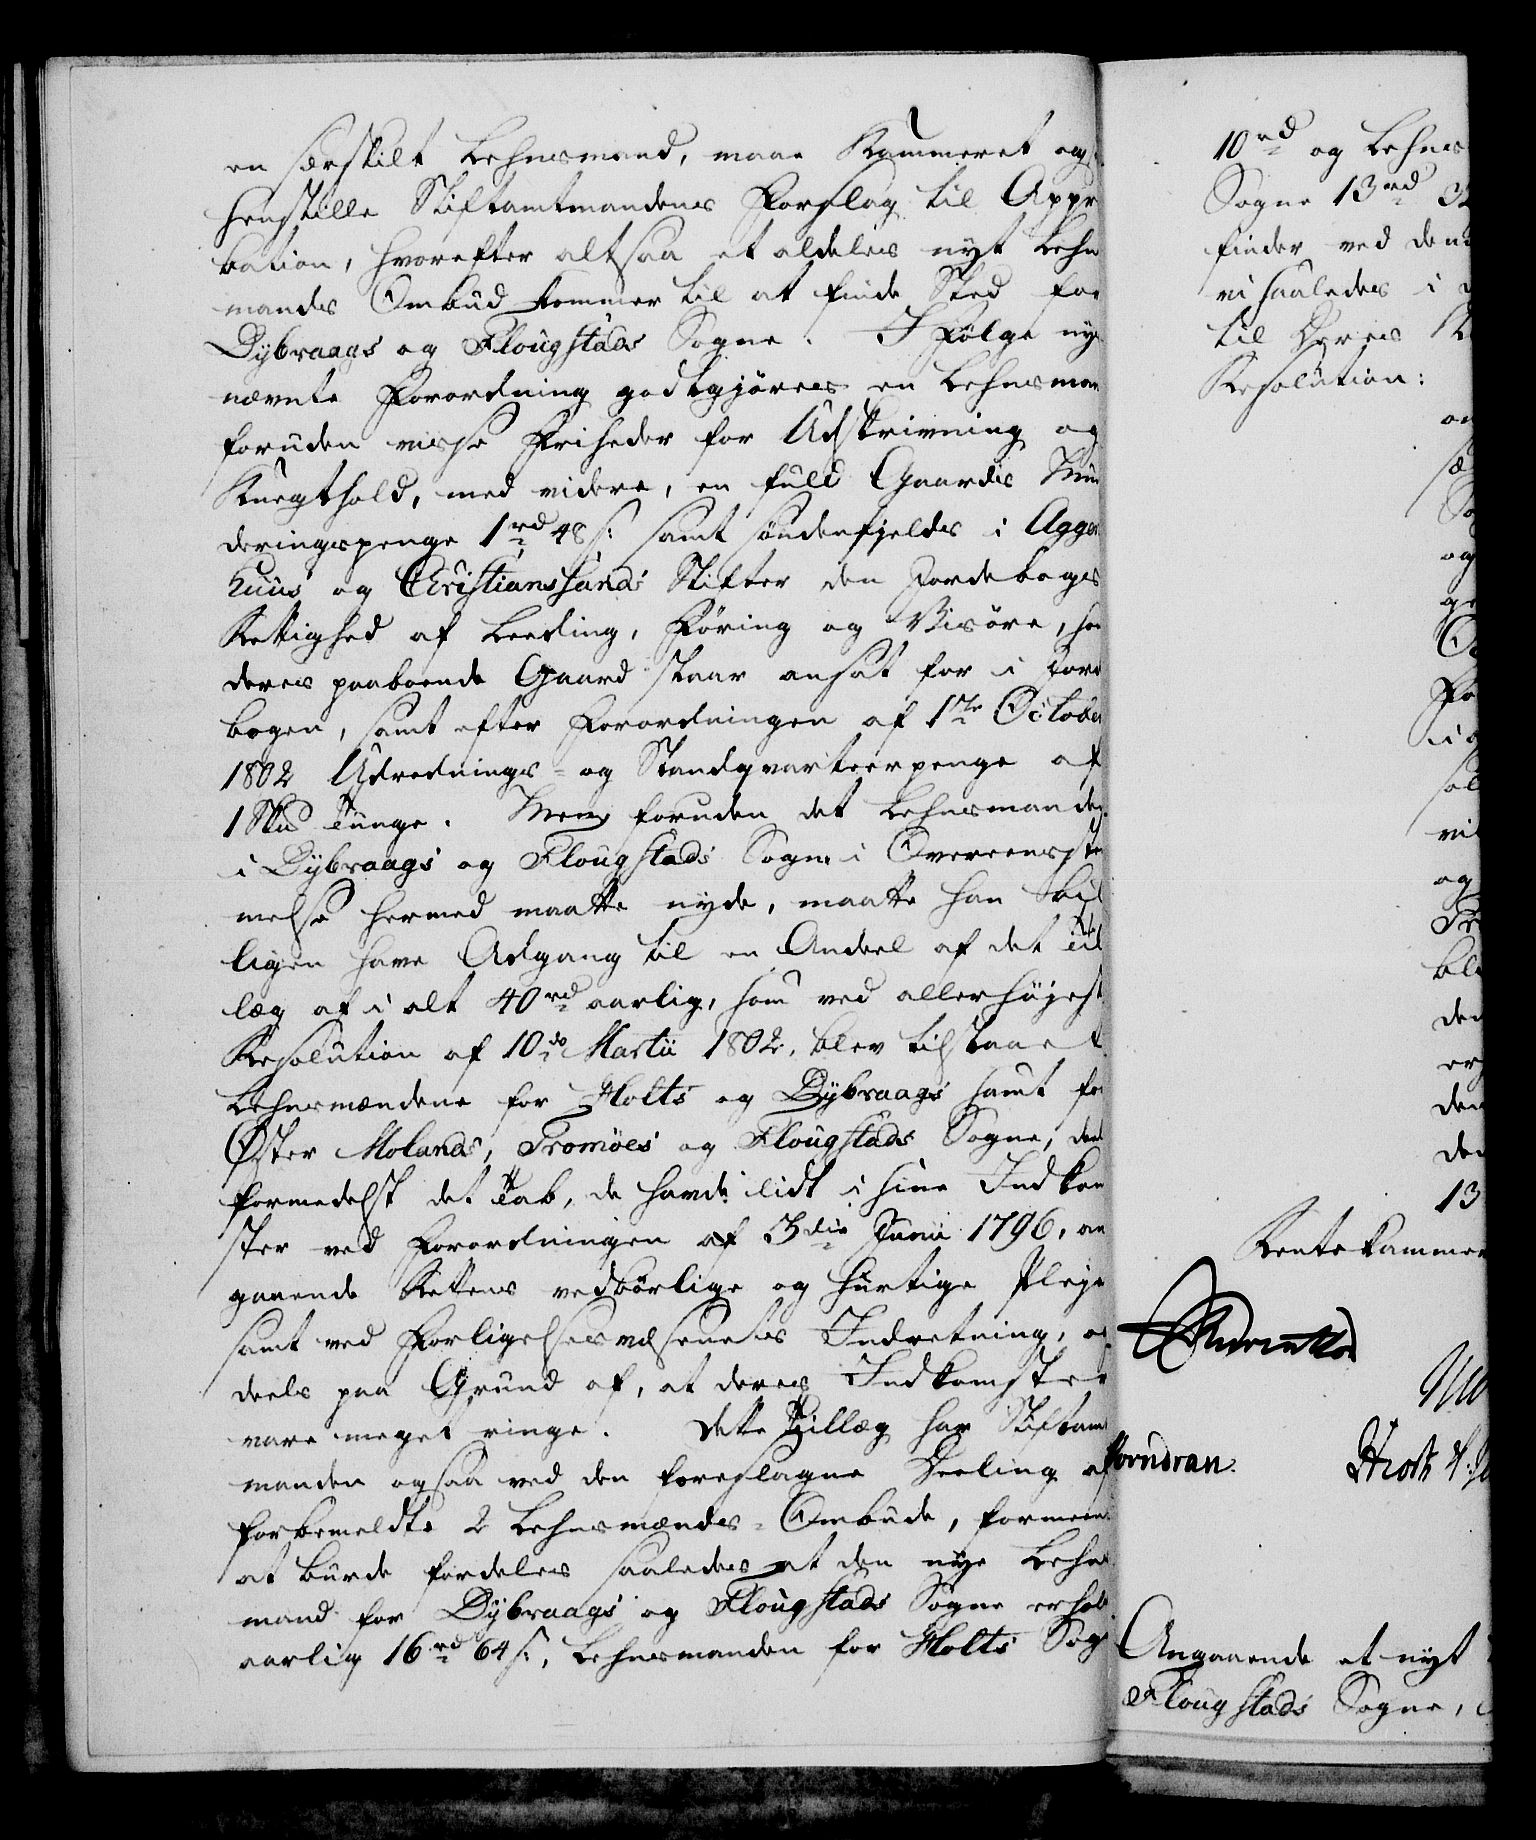 en særskilt Lehnsmand, maae Kammeret ogs
henstille Stiftamtmandens Forslag til Appr
bation, hvorefter altsaa et aldeles nyt Lehn
mands Ombud kommer til at finde Sted for
Dybraags og Flougstads Sogne. I Følge ny
nævnte Forordning godtgjøres en Lehnsman
foruden visse Friheder for Udskrivning og
Knegthold, med videre, en fuld Gaards Mun
deringspenge 1 rd 48 s: samt søndenfjelds i Agger
huus og Christianssands Stifter den Jordebogs
Rettighed af Leeding, Føring og Visøre, som
deres paaboende Gaard staar ansat for i Jorde
bogen, samt efter Forordningen af 1ste October
1802 Udrednings- og Standqvarteerpenge af
1 Skd Tunge. Men foruden det Lehnsmanden
i Dybraags og Flougstads Sogne i Overeensste
melse hermed maatte nyde, maatte han bil
ligen have Adgang til en Andeel af det Til
læg af i alt 40 rd aarlig, som ved allerhøjest
Resolution af 10de Martii 1802, blev tilstaaet
Lehnsmændene for Holts og Dybraags samt for
Øster Molands, Tromöes og Flougstads Sogne, deels
formedelst det Tab, de havde lidt i sine Indkom
ster ved Forordningen af 3die Junii 1796, an
gaaende Rettens vedbørlige og hurtige Pleje
samt ved Forligelsesvæsenets Indretning, og
deels paa Grund af, at deres Indkomster
vare meget ringe. Dette Tillæg har Stiftamt
manden ogsaa ved den foreslagne Deeling af
forbemeldte 2 Lehnsmænds-Ombude, formeent
at burde fordeles saaledes at den nye Lehns
mand for Dybraags og Flougstads Sogne erhol
aarlig 16 rd 64 s:, Lehnsmanden for Holts Sogn
10 rd og Lehns
Sogne 13 rd 32
finder ved den
vi saaledes i
til Deres
Resolution:
og
og
vil
og
den
den
13
Rentekammer
Angaaende et nyt
Flougstads Sogne,